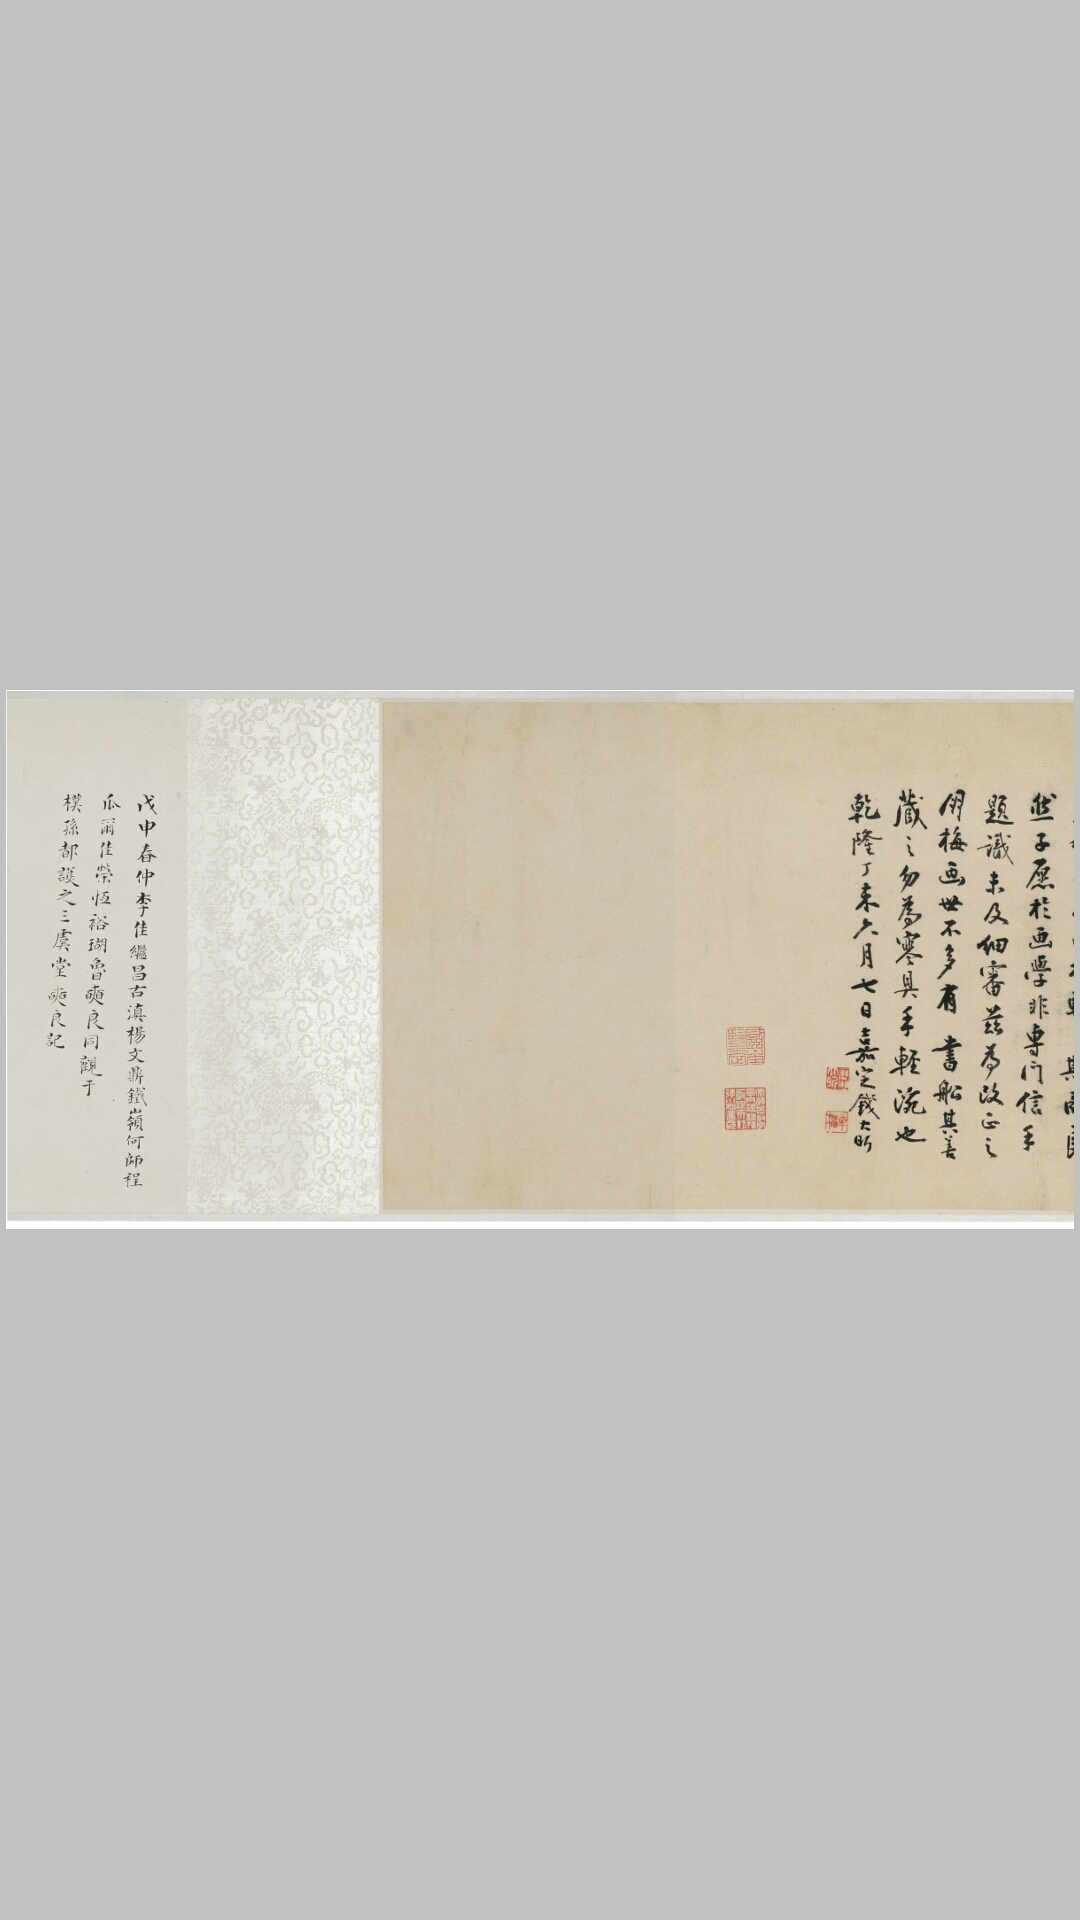 然子愿於画學非専門信手
題識未及細審茲為改正之
閒梅画世不多有 書船其善
藏之勿為寒具手輕涴也
乾隆丁未六月七日嘉定錢大昕
戊申春仲李佳繼昌古滇楊文鼎鐵嶺何師程
瓜爾佳榮恆裕瑚魯奭良同觀于
樸孫都護之三虞堂奭良記